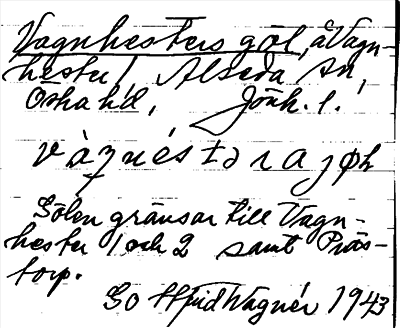 Vagnhesters göl, å Vagn-
hester 1 Alseda sn,
Östra hd, Jönk. l.
vàgnéstərajøl
Gölen gränsar till Vagn-
hester 1 och 2 samt Präs-
torp.
Gottfrid Wagnér 1943